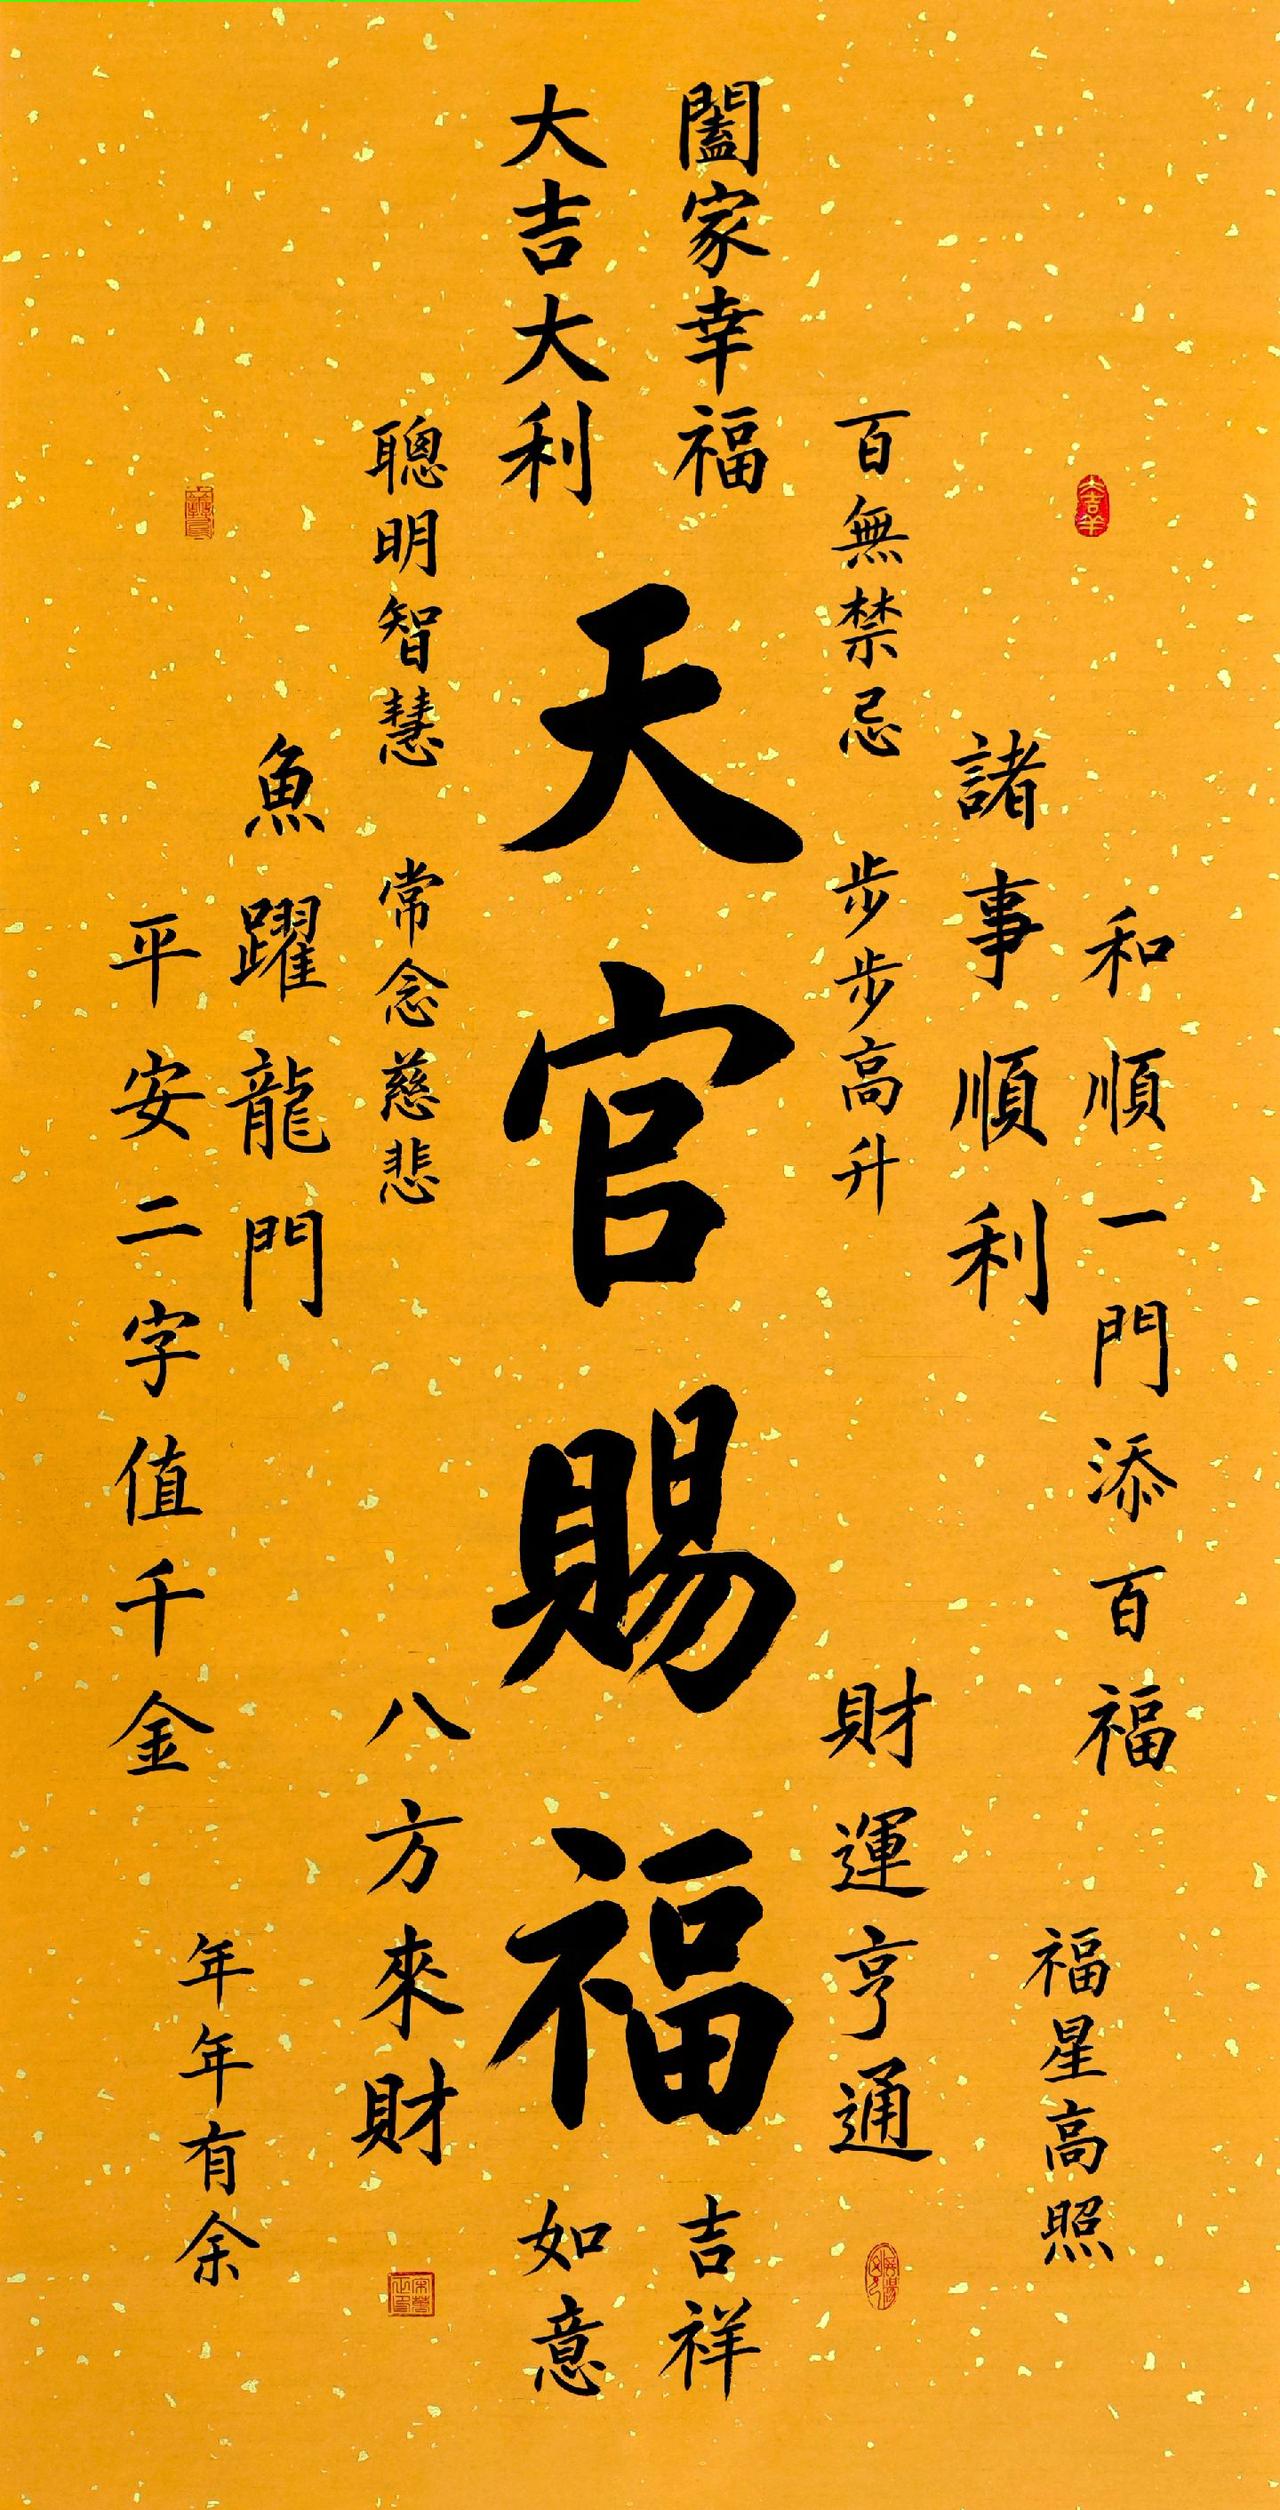 闔家幸福
大吉大利
天官賜福
吉祥
如意
百無禁忌
步步高升
財運亨通
諸事順利
和順一門添百福
福星高照
聰明智慧
常念慈悲
八方來財
魚躍龍門
平安二字值千金
年年有余
大吉羊